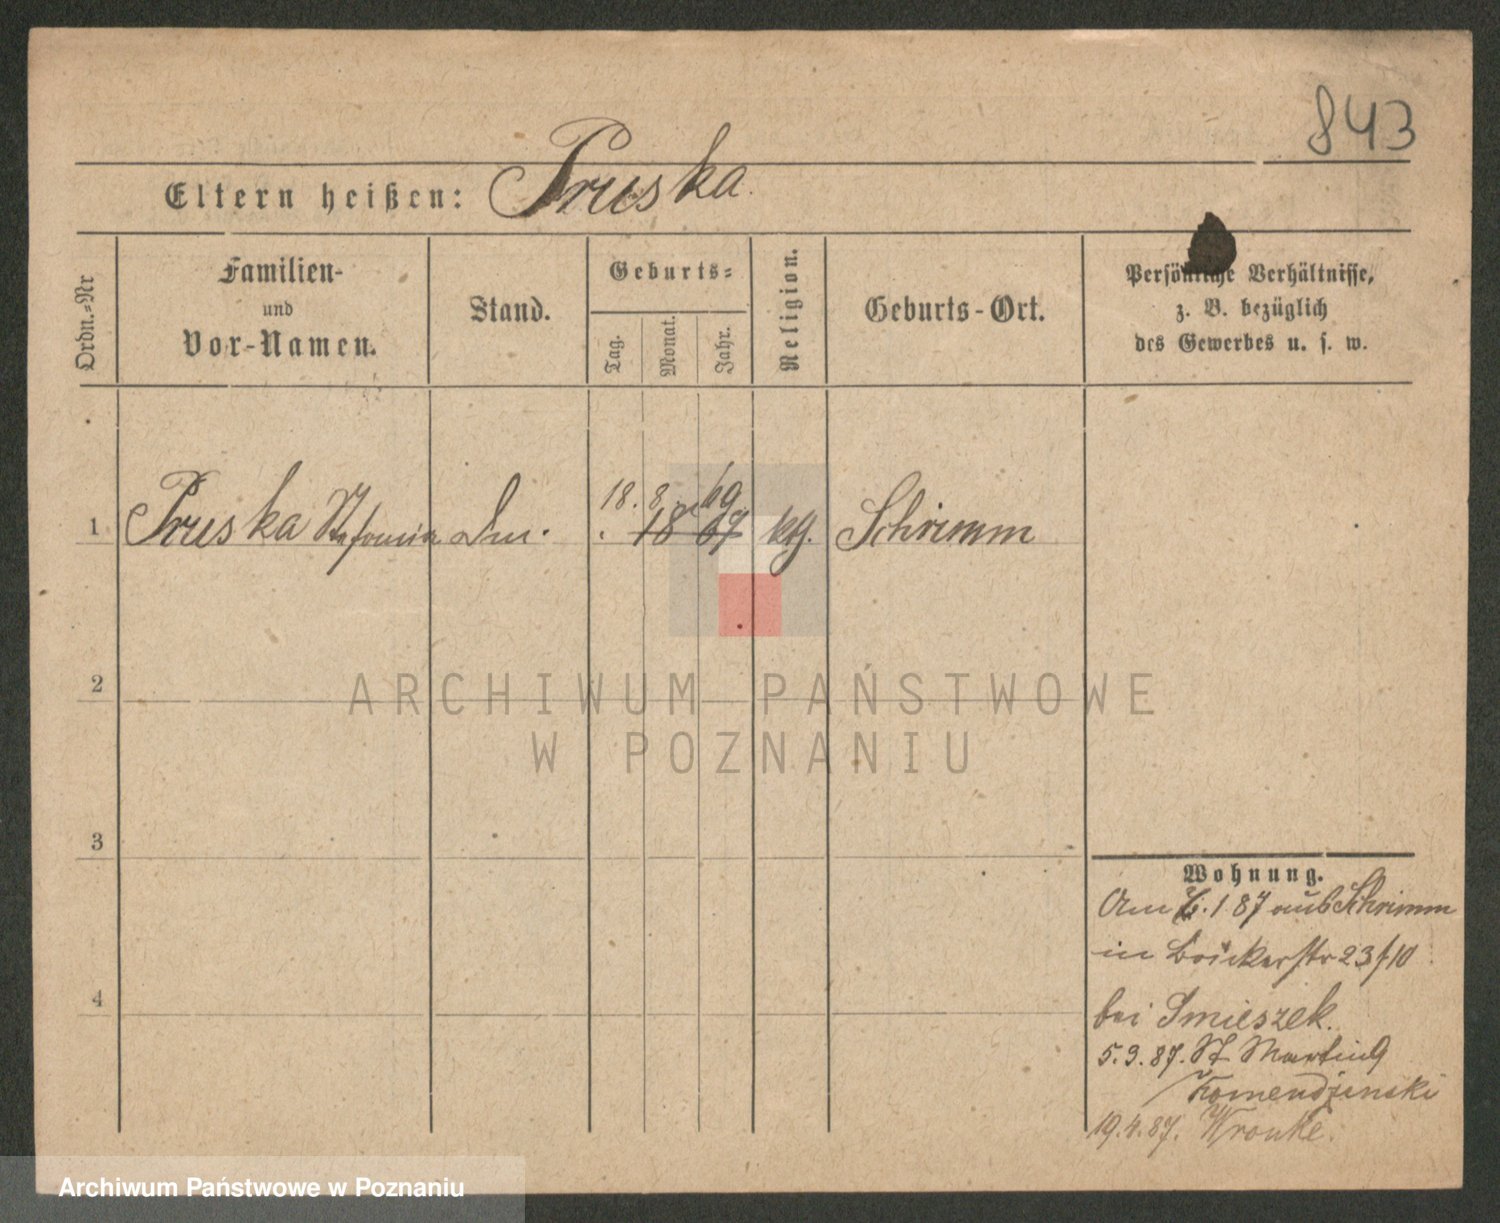 843
Eltern heißen: Pruska.
Ordn.-Nr
Familien-
und
Vor-Namen.
Stand.
Geburts=
Tag.
Monat.
Jahr.
Religion.
Geburts-Ort.
Persönliche Verhältnisse,
z. B. bezüglich
des Gewerbes u. s. w.
18. 8. 69
1 Pruska Stefania 18 67 kg. Schrimm
2
ARCHIWUM PAŃSTWOWE
W POZNANIU
3
Wohnung.
Am 1 87 aus Schrimm
in Bäckerstr 23/10
4
bei Smieszek.
5.3.87. St Martin 9
Komendzinski
19.4.87. Wronke.
Archiwum Państwowe w Poznaniu